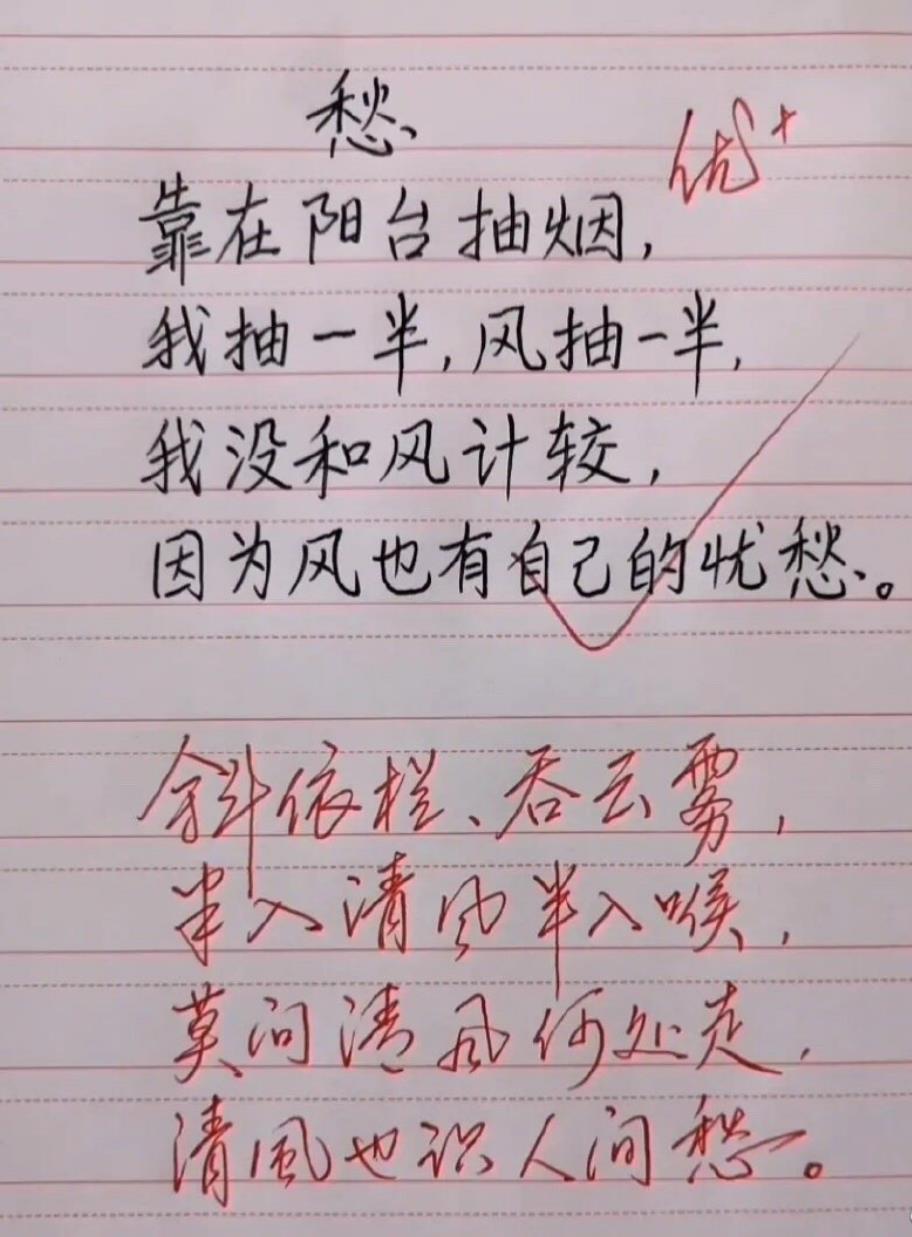 愁
优+
靠在阳台抽烟,
我抽一半,风抽一半,
我没和风计较,
因为风也有自己的忧愁。
斜依栏、吞云雾,
半入清风半入喉,
莫问清风何处走,
清風也识人间愁。